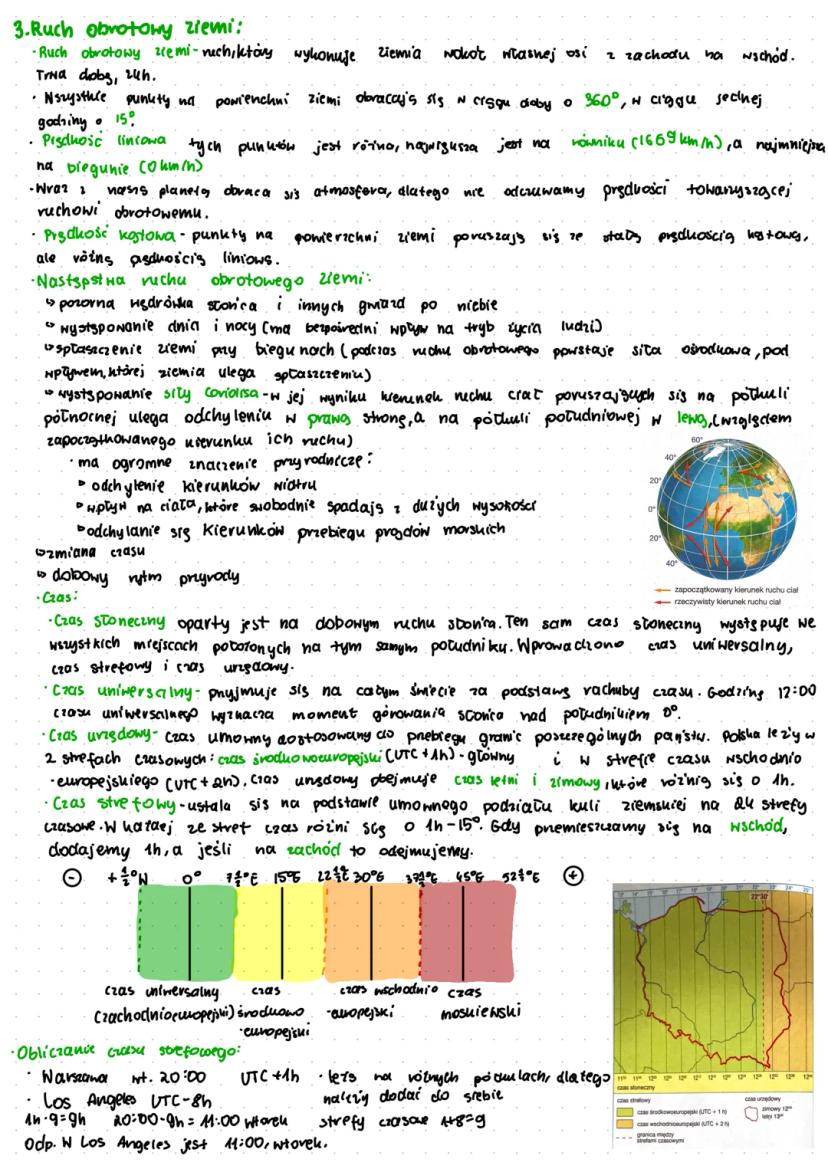 3. Ruch obrotowy ziemi:
· Ruch obrotowy ziemi - ruch, który wykonuje ziemia wokół własnej osi z zachodu na wschód.
Trwa dobę, 24h.
· Wszystkie punkty na powierzchni ziemi obracają się w ciągu doby o 360°, w ciągu jednej
godziny o 15°.
· Prędkość liniowa tych punktów jest różna, największa jest na równiku (1669 km/h), a najmniejsza
na biegunie (0 km/h)
· Wraz z naszą planetą obraca się atmosfera, dlatego nie odczuwamy prędkości towarzyszącej
ruchowi obrotowemu.
· Prędkość kątowa - punkty na powierzchni ziemi poruszają się ze stałą prędkością kątową,
ale różną prędkością liniową.
· Następstwa ruchu obrotowego ziemi:
↳ pozorna wędrówka słońca i innych gwiazd po niebie
↳ występowanie dnia i nocy (ma bezpośredni wpływ na tryb życia ludzi)
↳ spłaszczenie ziemi przy biegunach (podczas ruchu obrotowego powstaje siła odśrodkowa, pod
wpływem, której ziemia ulega spłaszczeniu)
↳ występowanie siły Coriolisa - w jej wyniku kierunek ruchu ciał poruszających się na półkuli
północnej ulega odchyleniu w prawą stronę, a na półkuli południowej w lewą, (względem
zapoczątkowanego kierunku ich ruchu)
· ma ogromne znaczenie przyrodnicze:
▹ odchylenie kierunków wiatru
▹ wpływ na ciała, które swobodnie spadają z dużych wysokości
▹ odchylanie się kierunków przebiegu prądów morskich
↳ zmiana czasu
↳ dobowy rytm przyrody
60°
40°
20°
0°
20°
40°
zapoczątkowany kierunek ruchu ciał
rzeczywisty kierunek ruchu ciał
· Czas:
· Czas słoneczny oparty jest na dobowym ruchu słońca. Ten sam czas słoneczny występuje we
wszystkich miejscach położonych na tym samym południku. Wprowadzono czas uniwersalny,
czas strefowy i czas urzędowy.
· Czas uniwersalny - przyjmuje się na całym świecie za podstawę rachuby czasu. Godzinę 12:00
czasu uniwersalnego wyznacza moment górowania słońca nad południkiem 0°.
· Czas urzędowy - czas umowny dostosowany do przebiegu granic poszczególnych państw. Polska leży w
2 strefach czasowych: czas środkowoeuropejski (UTC + 1h) - główny i w strefie czasu wschodnio
-europejskiego (UTC + 2h). Czas urzędowy obejmuje czas letni i zimowy, które różnią się o 1h.
· Czas strefowy - ustala się na podstawie umownego podziału kuli ziemskiej na 24 strefy
czasowe. W każdej ze stref czas różni się o 1h - 15°. Gdy przemieszczamy się na wschód,
dodajemy 1h, a jeśli na zachód to odejmujemy.
⊖ 0° 7½°E 15°E 22½°E 30°E 37½°E 45°E 52½°E ⊕
czas uniwersalny czas czas wschodnio czas
(zachodnioeuropejski) środkowo -europejski moskiewski
-europejski
22°30'
czas słoneczny
czas strefowy czas urzędowy
czas środkowoeuropejski (UTC + 1 h) zimowy 12⁰⁰
letni 13⁰⁰
czas wschodnioeuropejski (UTC + 2 h)
granica między
strefami czasowymi
· Obliczanie czasu strefowego:
· Warszawa wt. 20:00 UTC +1h · leżą na różnych półkulach, dlatego
· Los Angeles UTC -8h należy dodać do siebie
1h·9=9h 20:00-9h = 11:00 wtorek strefy czasowe 1+8=9
Odp. W Los Angeles jest 11:00, wtorek.